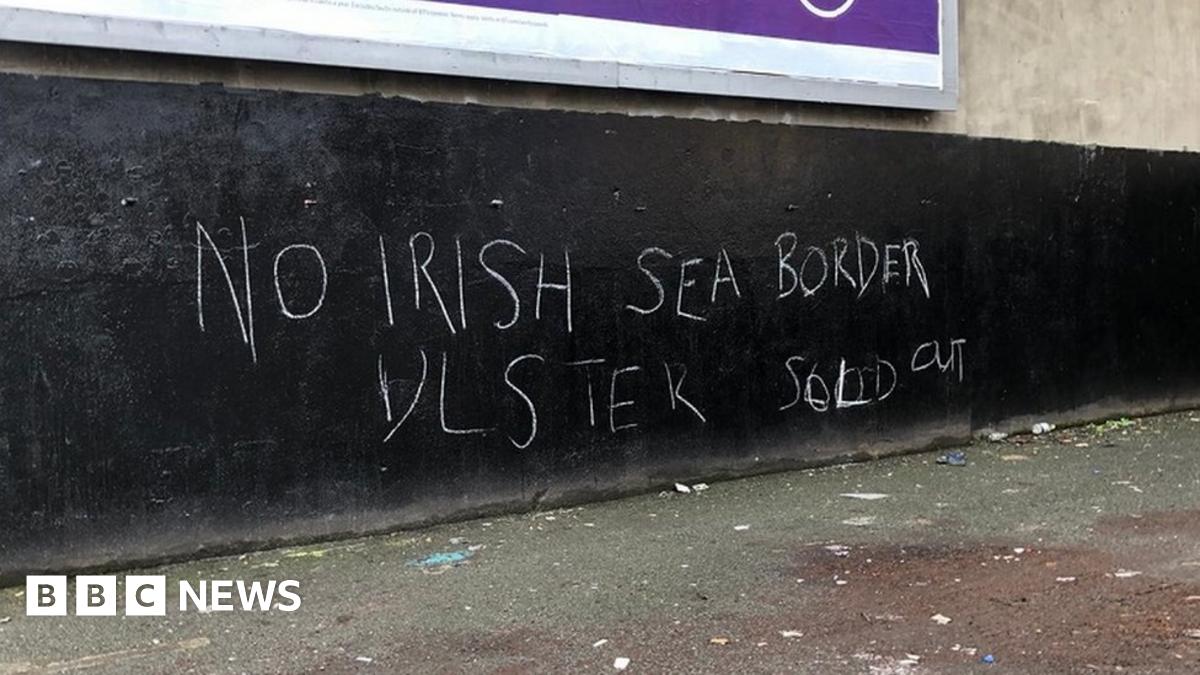 NO IRISH SEA BORDER
ULSTER SOLD OUT
BBC NEWS